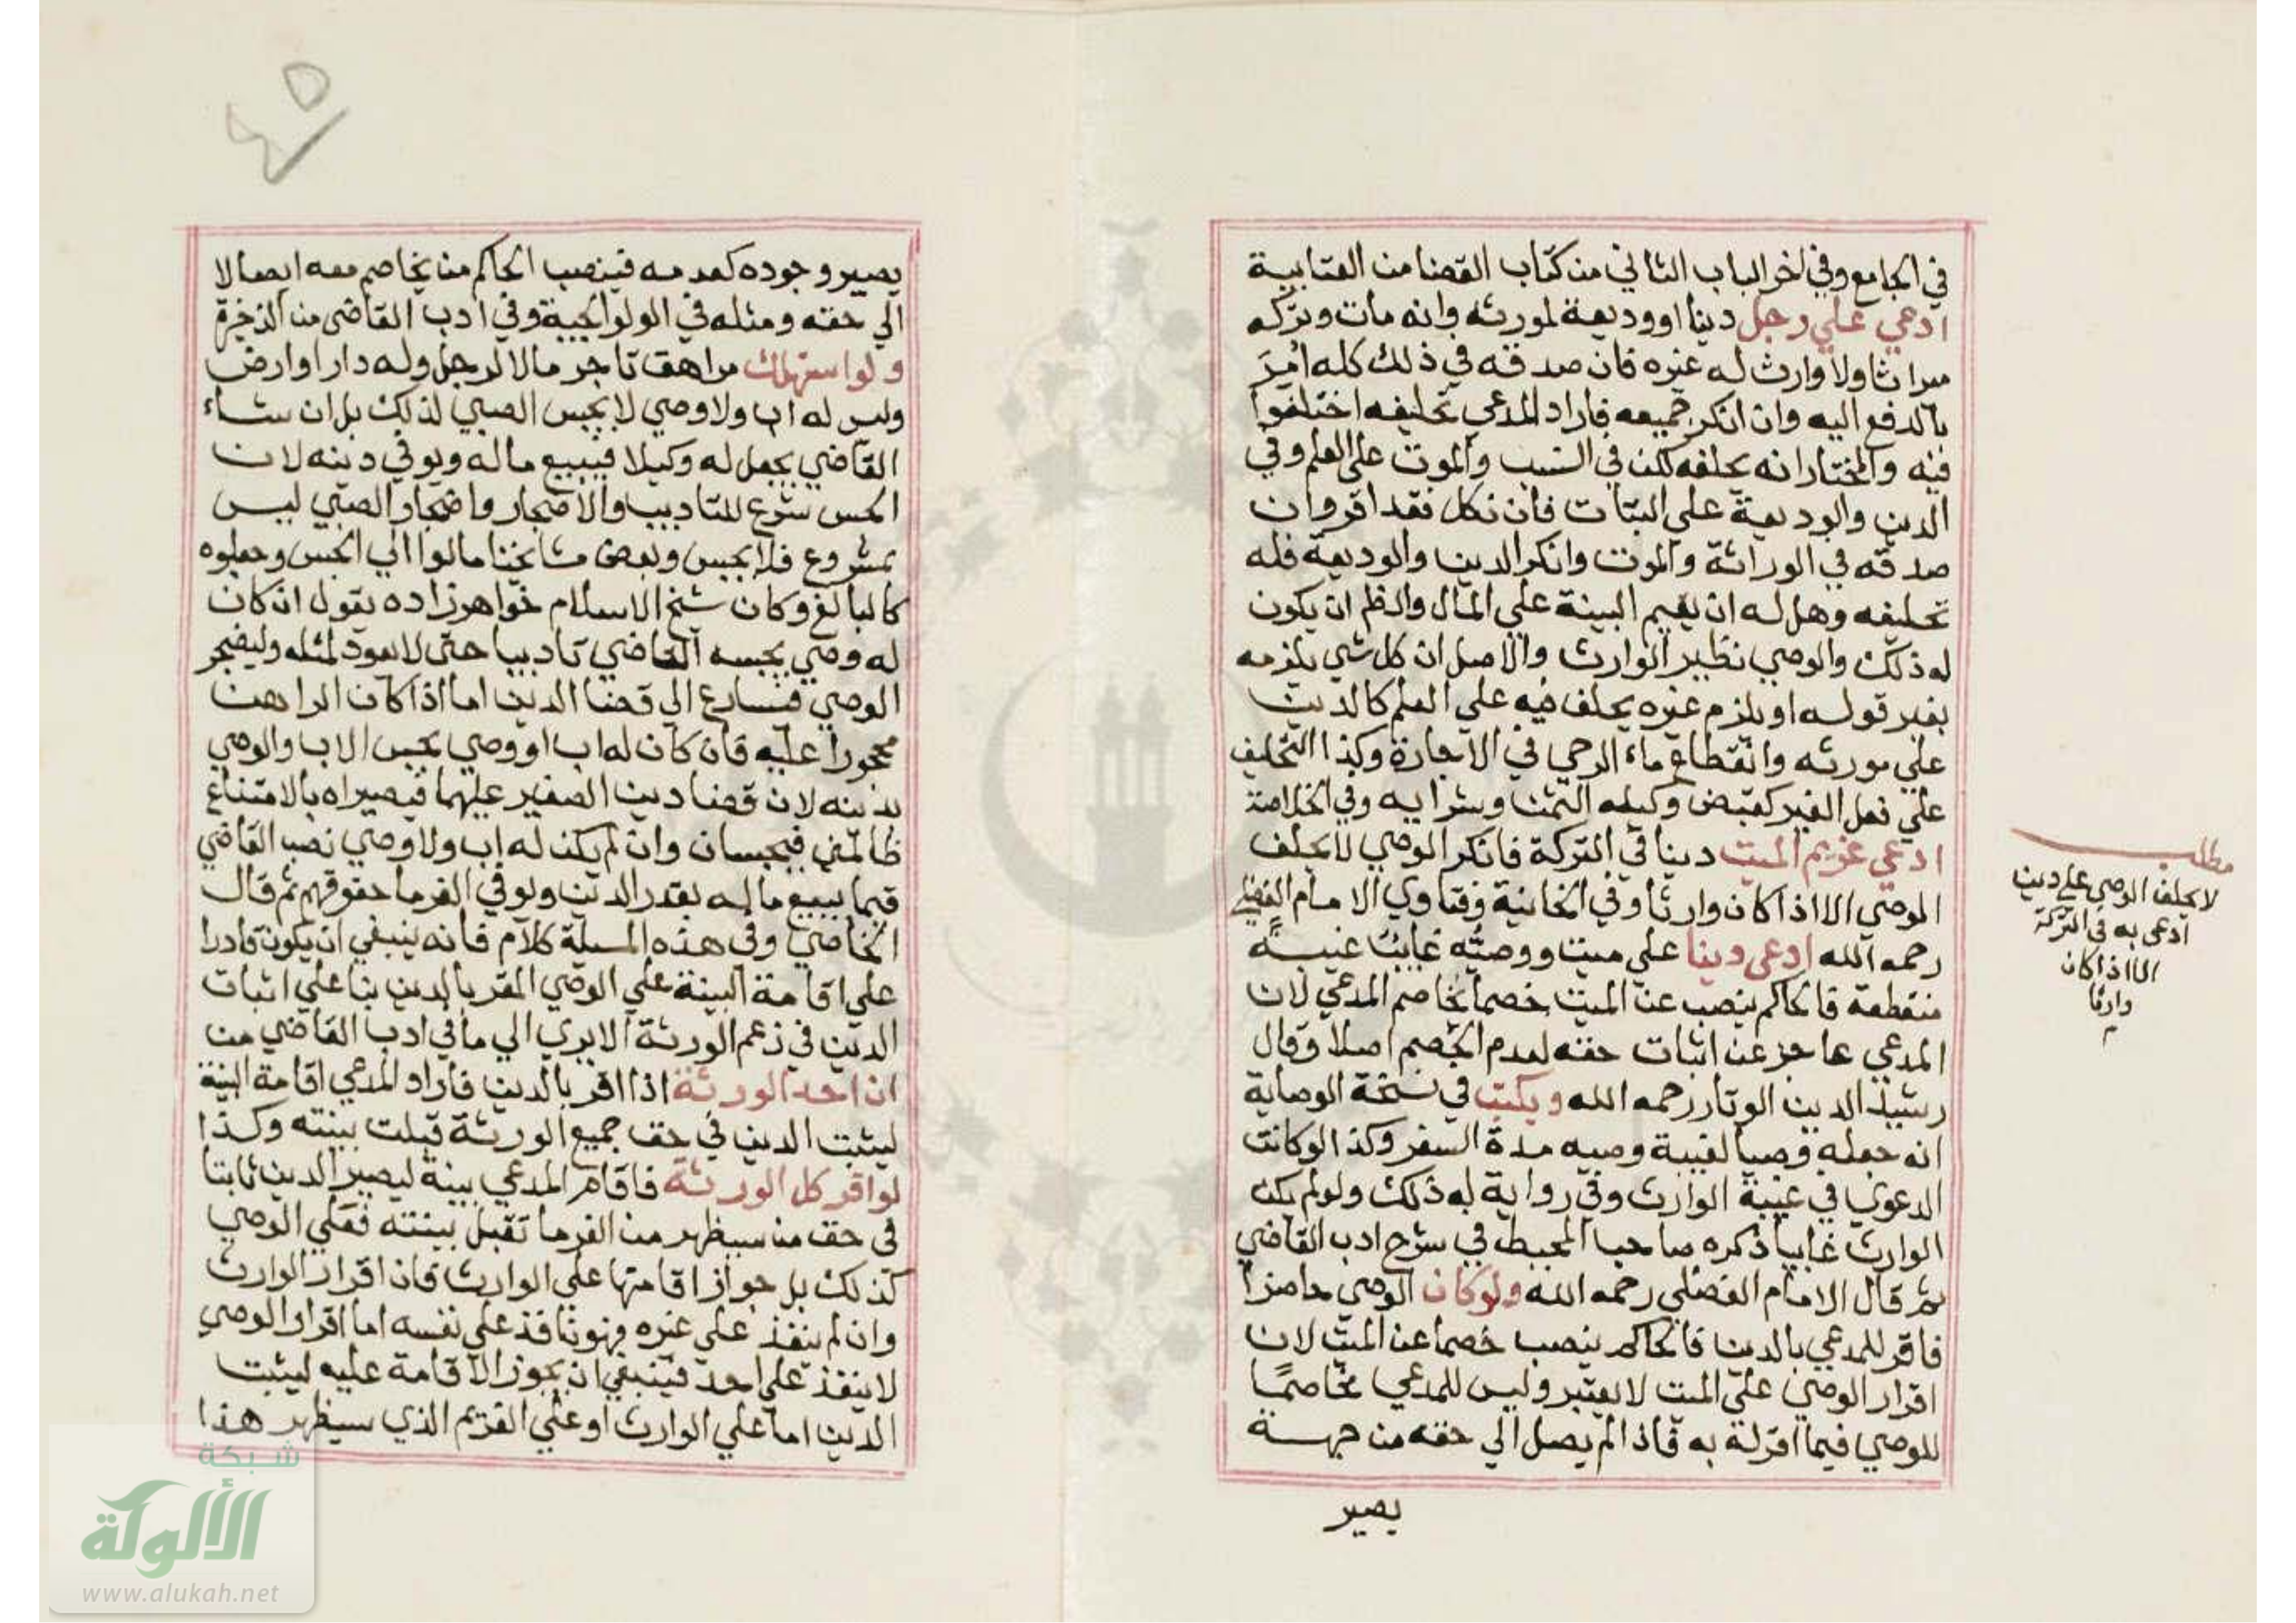 في الجامع وفي اخر الباب الثاني من كتاب القضا من العتابية
ادعي علي رجل دينا او وديعة لمورثه وانه مات وتركه
ميراثا ولا وارث له غيره فان صدقه في ذلك كله اُمِرَ
بالدفع اليه وان انكر جميعه فاراد المدعي تحليفه اختلفوا
فيه والمختار انه يحلفه لكن في النسب والموت علي العلم وفي
الدين والوديعة علي البتات فان نكل فقد اقر وان
صدقه في الوراثة والموت وانكر الدين والوديعة فله
تحليفه وهل له ان يقيم البينة علي المال والظم ان يكون
له ذلك والوصي نظير الوارث والاصل ان كل شي يلزمه
بغير قوله او يلزم غيره يحلف فيه علي العلم كالدين
علي مورثه وانقطاع ماء الرحي في الاجارة وكذا التحليف
علي فعل الغير كقبض وكيله الثمن وشرايه وفي الخلاصة
ادعي غريم الميت دينا في التركة فانكر الوصي لا يحلف
الوصي الا اذا كان وارثا وفي الخانية وفتاوي الامام الفضلي
رحمه الله ادعي دينا علي ميت ووصيُّه غايبٌ غيبةً
منقطعة فالحاكم ينصب عن الميت خصما يخاصم المدعي لان
المدعي عاجز عن اثبات حقه لعدم الخصم اصلا وقال
رشيد الدين الوتار رحمه الله ويكتب في نسخة الوصاية
انه جعله وصيا لغيبة وصيه مدة السفر وكذا لو كانت
الدعوي في غيبة الوارث وفي رواية له ذلك ولو لم يكن
الوارث غايبا ذكره صاحب المحيط في شرح ادب القاضي
ثم قال الامام الفضلي رحمه الله ولو كان الوصي حاضرا
فاقر للمدعي بالدين فالحاكم ينصب خصما عن الميت لان
اقرار الوصي علي الميت لا يعتبر وليس للمدعي مخاصمًا
للوصي فيما اقر له به فاذا لم يصل الي حقه من جهة
يصير
مطلب
لا يحلف الوصي علي دين
ادعي به في التركة
الا اذا كان
وارثا
م
يصير وجوده كعدمه فينصب الحاكم من يخاصم معه ايصالا
الي حقه ومثله في الولوالجية وفي ادب القاضي من الذخيرة
ولو استهلك مراهق تاجر مالا لرجل وله دار او ارض
وليس له اب ولا وصي لا يحبس الصبي لذلك بل ان شاء
القاضي يجعل له وكيلا فيبيع ماله ويوفي دينه لان
الحبس شرع للتاديب والاضجار واضجار الصبي ليس
بمشروع فلا يحبس وبعض مشايخنا مالوا الي الحبس وجعلوه
كالبالغ وكان شيخ الاسلام خواهر زاده يقول ان كان
له وصي يحبسه القاضي تاديبا حتى لا يعود لمثله وليضجر
الوصي فيسارع الي قضا الدين اما اذا كان الراهن
محجورا عليه فان كان له اب او وصي يحبس الاب والوصي
بدينه لان قضا دين الصغير عليهما فيصيراه بالامتناع
ظالمين فيحبسان وان لم يكن له اب ولا وصي نصب القاضي
قيما يبيع ماله بقدر الدين ويوفي الغرما حقوقهم ثم قال
الخاصي وفي هذه المسيلة كلام فانه ينبغي ان يكون قادرا
علي اقامة البينة علي الوصي المقر بالدين بنا علي اثبات
الدين في زعم الورثة الا يري الي ما في ادب القاضي من
ان احد الورثة اذا اقر بالدين فاراد المدعي اقامة البينة
ليثبت الدين في حق جميع الورثة قبلت بينته وكذا
لو اقر كل الورثة فاقام المدعي بينة ليصير الدين ثابتا
في حق من سيظهر من الغرما تقبل بينته فعلي الوصي
كذلك بل جواز اقامتها علي الوارث فان اقرار الوارث
وان لم ينفذ علي غيره فهو نافذ علي نفسه اما اقرار الوصي
لا ينفذ علي احد فينبغي ان يجوز الاقامة عليه ليثبت
الدين اما علي الوارث او علي الغريم الذي سيظهر هذا
شبكة
الألوكة
www.alukah.net